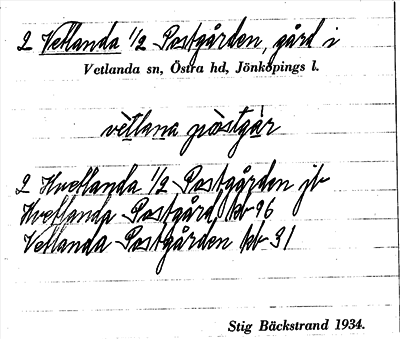 2 Vetlanda 1/2 Postgården, gård i
Vetlanda sn, Östra hd, Jönköpings l.
vètlana pòstgàr
2 Hvetlanda 1/2 Postgården jb
Hvetlanda Postgård kb 96
Vetlanda Postgården kb 31
Stig Bäckstrand 1934.